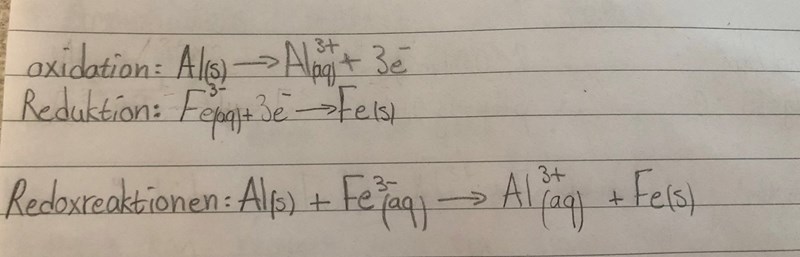 oxidation: Al(s) → Al³⁺(aq) + 3e⁻
Reduktion: Fe³⁻(aq) + 3e⁻ → Fe(s)
Redoxreaktionen: Al(s) + Fe³⁻(aq) → Al³⁺(aq) + Fe(s)